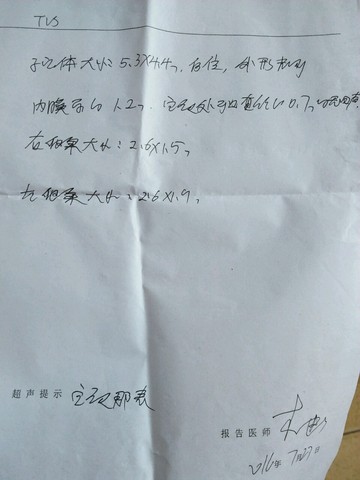 TVS
子宫体大小: 5.3×4.4, 后位, 外形规则
内膜厚约 1.2, 宫颈处 直径约0.7
右卵巢大小: 2.6×1.5,
左卵巢大小: 2.6×1.9,
超声提示 宫颈那囊
报告医师
2016年7月27日